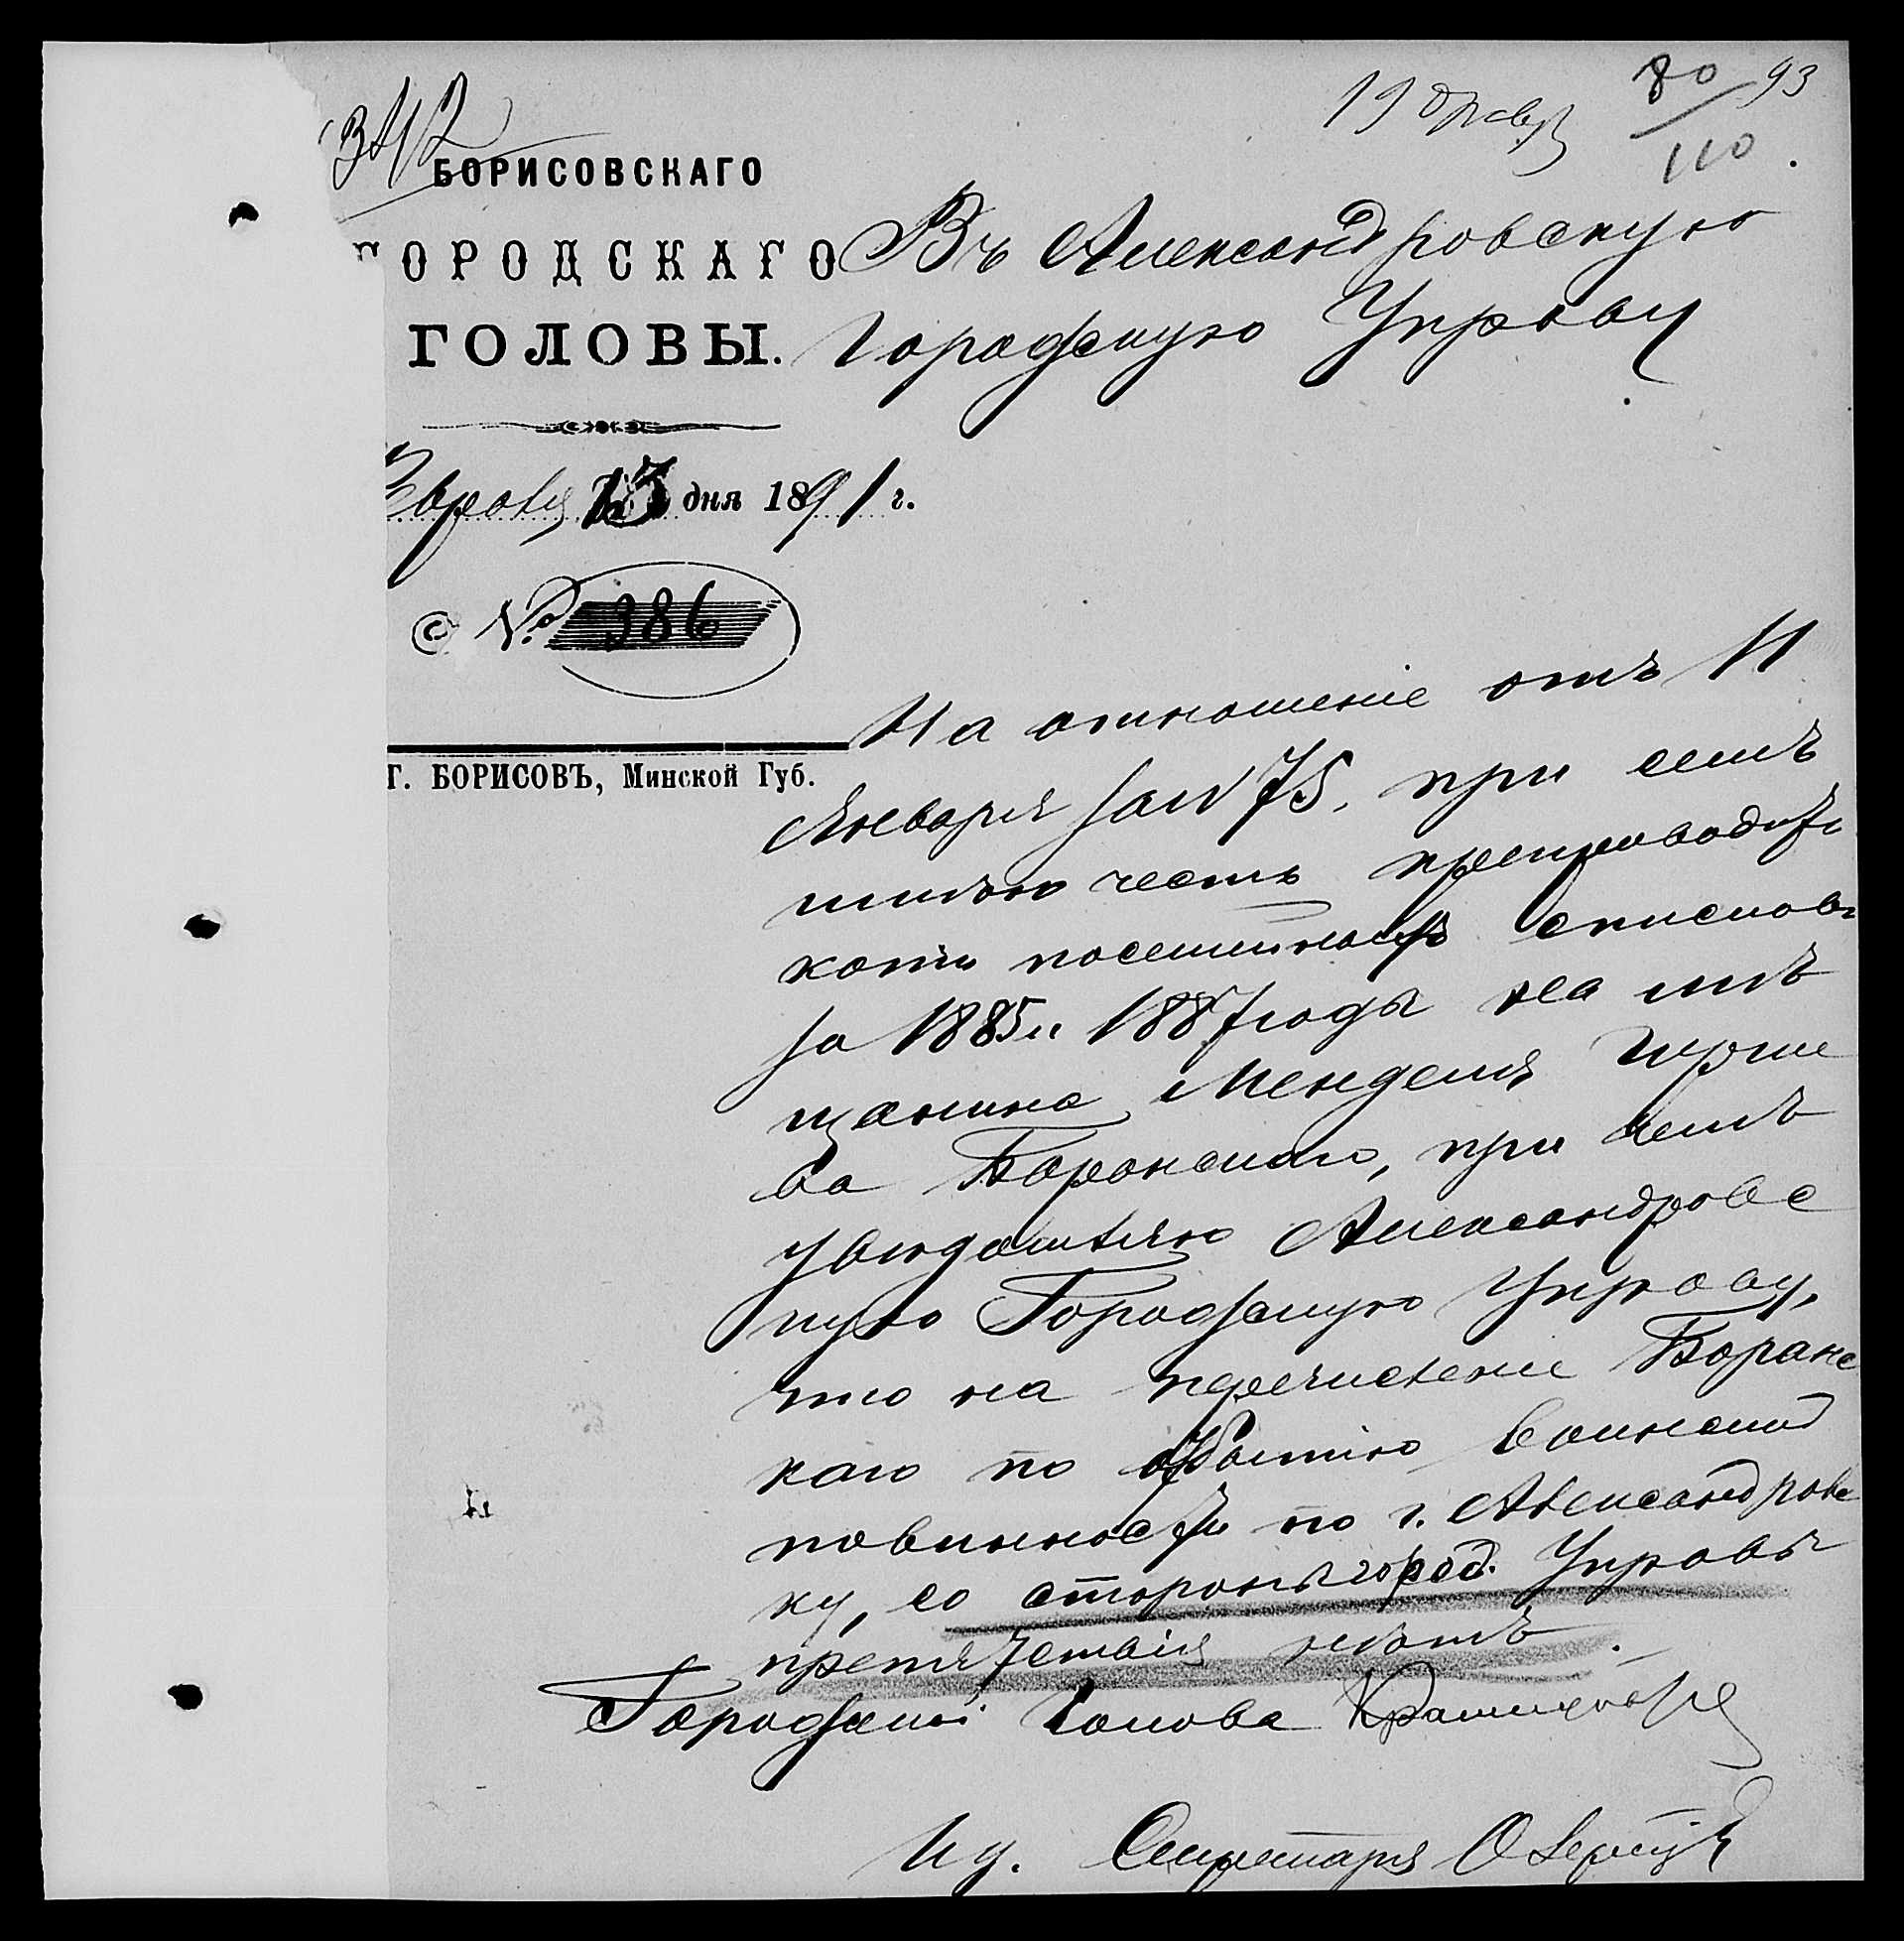 342
19 февр
80 93
110
БОРИСОВСКАГО
ГОРОДСКАГО
ГОЛОВЫ.
Февраля 13 дня 1891 г.
№ 386
Г. БОРИСОВЪ, Минской Губ.
Въ Александровскую
Городскую Управу
На отношеніе отъ 11
Января за № 75, при семъ
имѣю честь препроводить
копіи посемейныхъ списковъ
за 1885 и 1887 годы на мѣ
щанина Менделя Герше
ва Боранскаго, при чемъ
увѣдомляю Александровс
кую Городскую Управу,
что на перечисленіе Боранс
каго по отбытію воинской
повинности по г. Александровс
ку, со стороны город. Управы
препятствія нѣтъ.
Городской Голова
И д. Секретаря